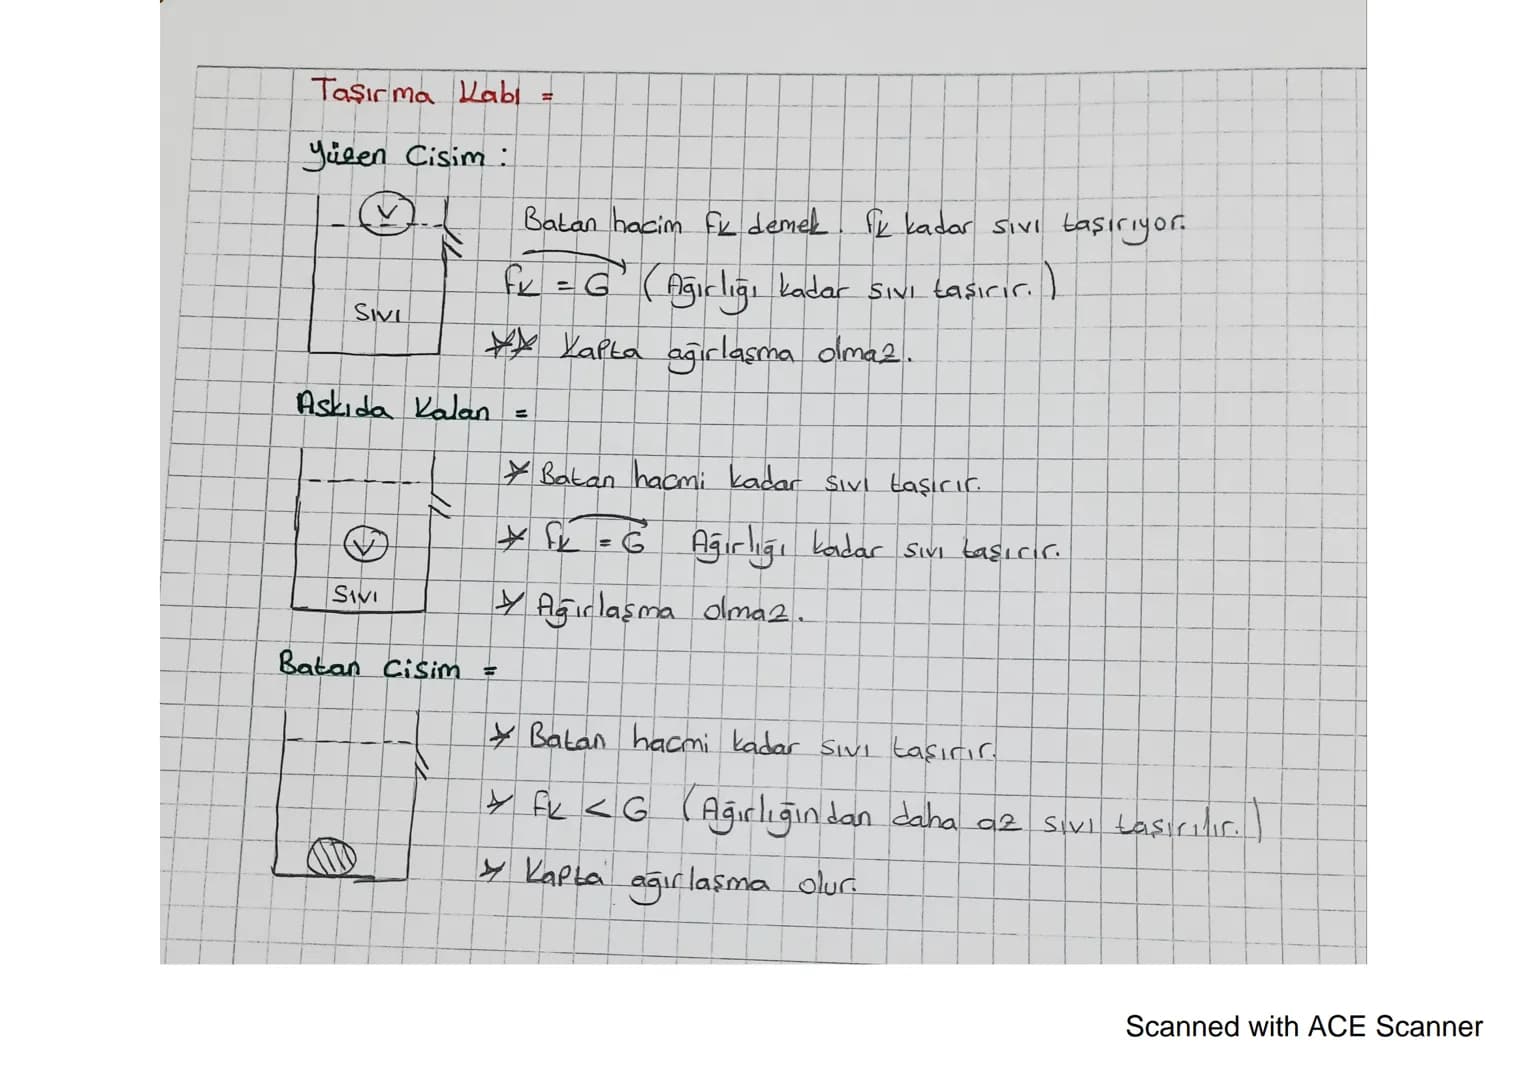 Taşırma Kabı =
Yüzen Cisim :
V
Batan hacim Fk demek. Fk kadar sıvı taşırıyor.
Fk = G (Ağırlığı kadar sıvı taşırır.)
Sıvı
** Kapta ağırlaşma olmaz.
Askıda Kalan =
* Batan hacmi kadar sıvı taşırır.
V
* Fk = G Ağırlığı kadar sıvı taşırır.
Sıvı
* Ağırlaşma olmaz.
Batan Cisim =
* Batan hacmi kadar sıvı taşırır.
* Fk < G (Ağırlığından daha az sıvı taşırılır.)
* Kapta ağırlaşma olur.
Scanned with ACE Scanner